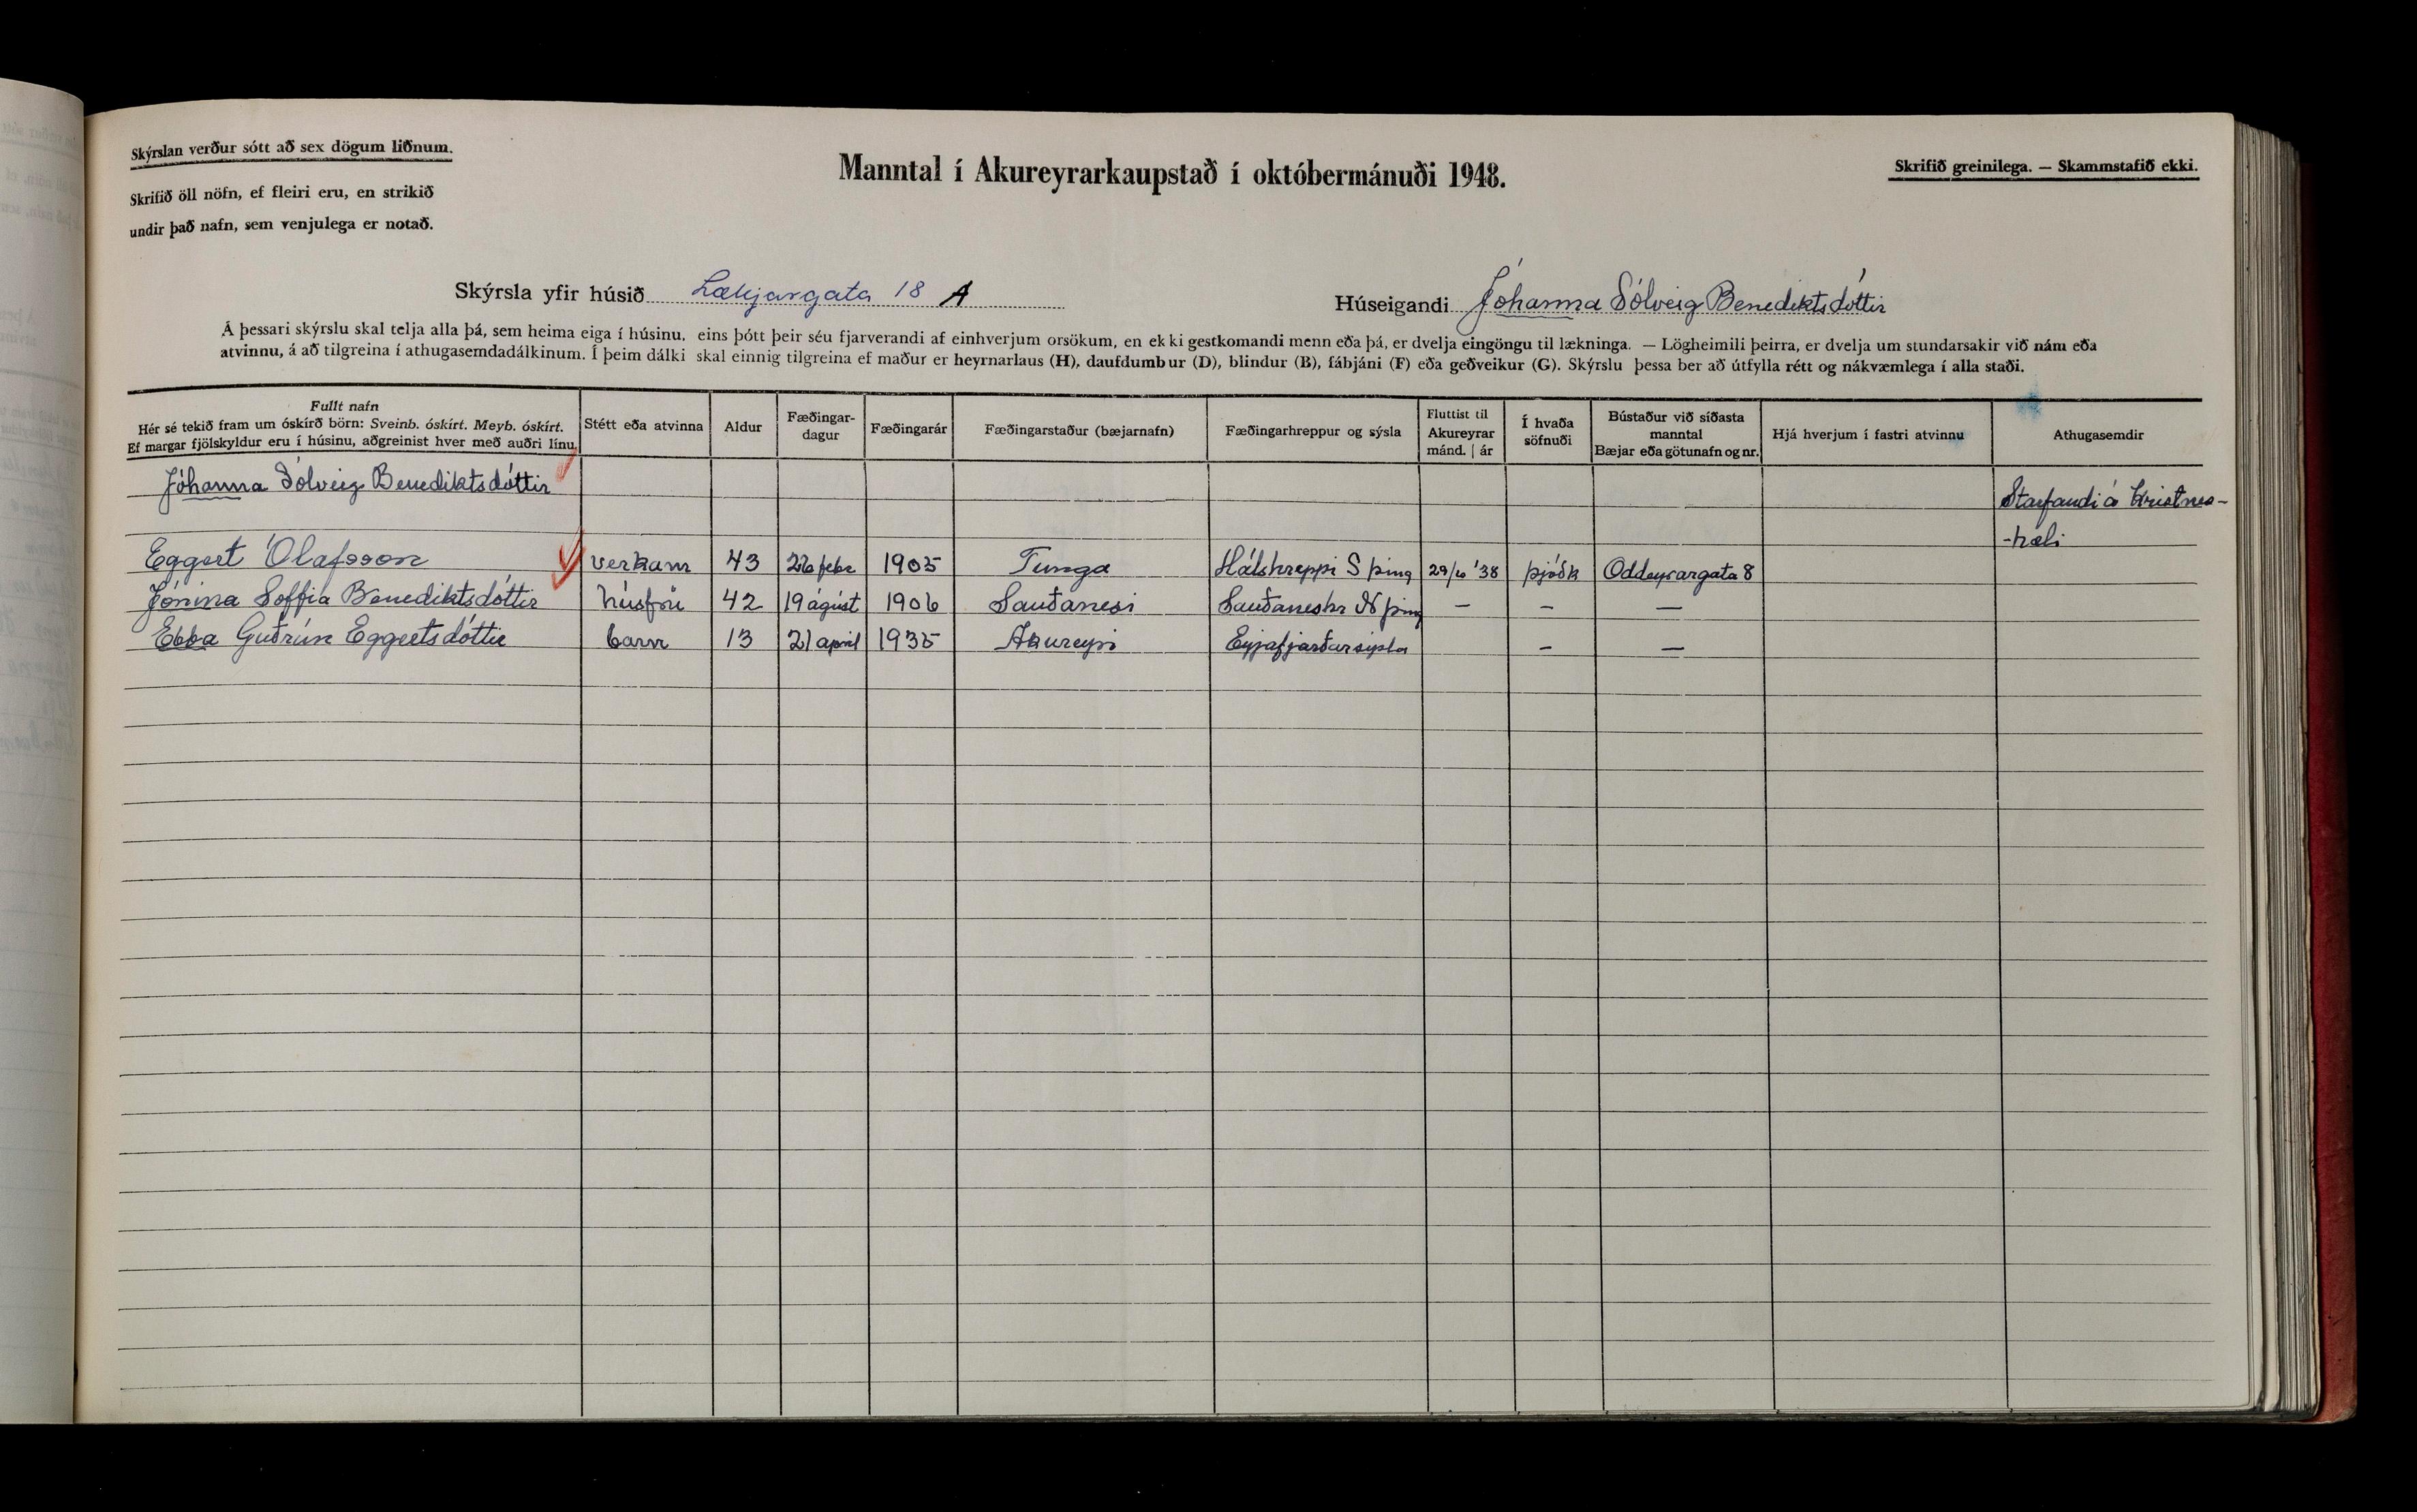 Skýrslan verður sótt að sex dögum liðnum.
Skrifið öll nöfn, ef fleiri eru, en strikið
undir það nafn, sem venjulega er notað.
Manntal í Akureyrarkaupstað í októbermánuði 1948.
Skrifið greinilega. — Skammstafið ekki.
Skýrsla yfir húsið Lækjargata 18 A
Húseigandi Jóhanna Sólveig Benediktsdóttir
Á þessari skýrslu skal telja alla þá, sem heima eiga í húsinu, eins þótt þeir séu fjarverandi af einhverjum orsökum, en ekki gestkomandi menn eða þá, er dvelja eingöngu til lækninga. — Lögheimili þeirra, er dvelja um stundarsakir við nám eða
atvinnu, á að tilgreina í athugasemdadálkinum. Í þeim dálki skal einnig tilgreina ef maður er heyrnarlaus (H), daufdumbur (D), blindur (B), fábjáni (F) eða geðveikur (G). Skýrslu þessa ber að útfylla rétt og nákvæmlega í alla staði.
Fullt nafn
Hér sé tekið fram um óskírð börn: Sveinb. óskírt. Meyb. óskírt.
Ef margar fjölskyldur eru í húsinu, aðgreinist hver með auðri línu.
Stétt eða atvinna
Aldur
Fæðingar-
dagur
Fæðingarár
Fæðingarstaður (bæjarnafn)
Fæðingarhreppur og sýsla
Fluttist til
Akureyrar
mánd. | ár
Í hvaða
söfnuði
Bústaður við síðasta
manntal
Bæjar eða götunafn og nr.
Hjá hverjum í fastri atvinnu
Athugasemdir
Jóhanna Sólveig Benediktsdóttir
Starfandi á Kristnes-
-hæli
Eggert Ólafsson verkam 43 26 febr 1905 Tunga Hálshreppi S þing 29/6 '38 þjóðk Oddeyrargata 8
Jónína Soffia Benediktsdóttir húsfrú 42 19 ágúst 1906 Sauðanesi Sauðaneshr N þing — — —
Ebba Guðrún Eggertsdóttir barn 13 21 april 1935 Akureyri Eyjafjarðarsýsla — —